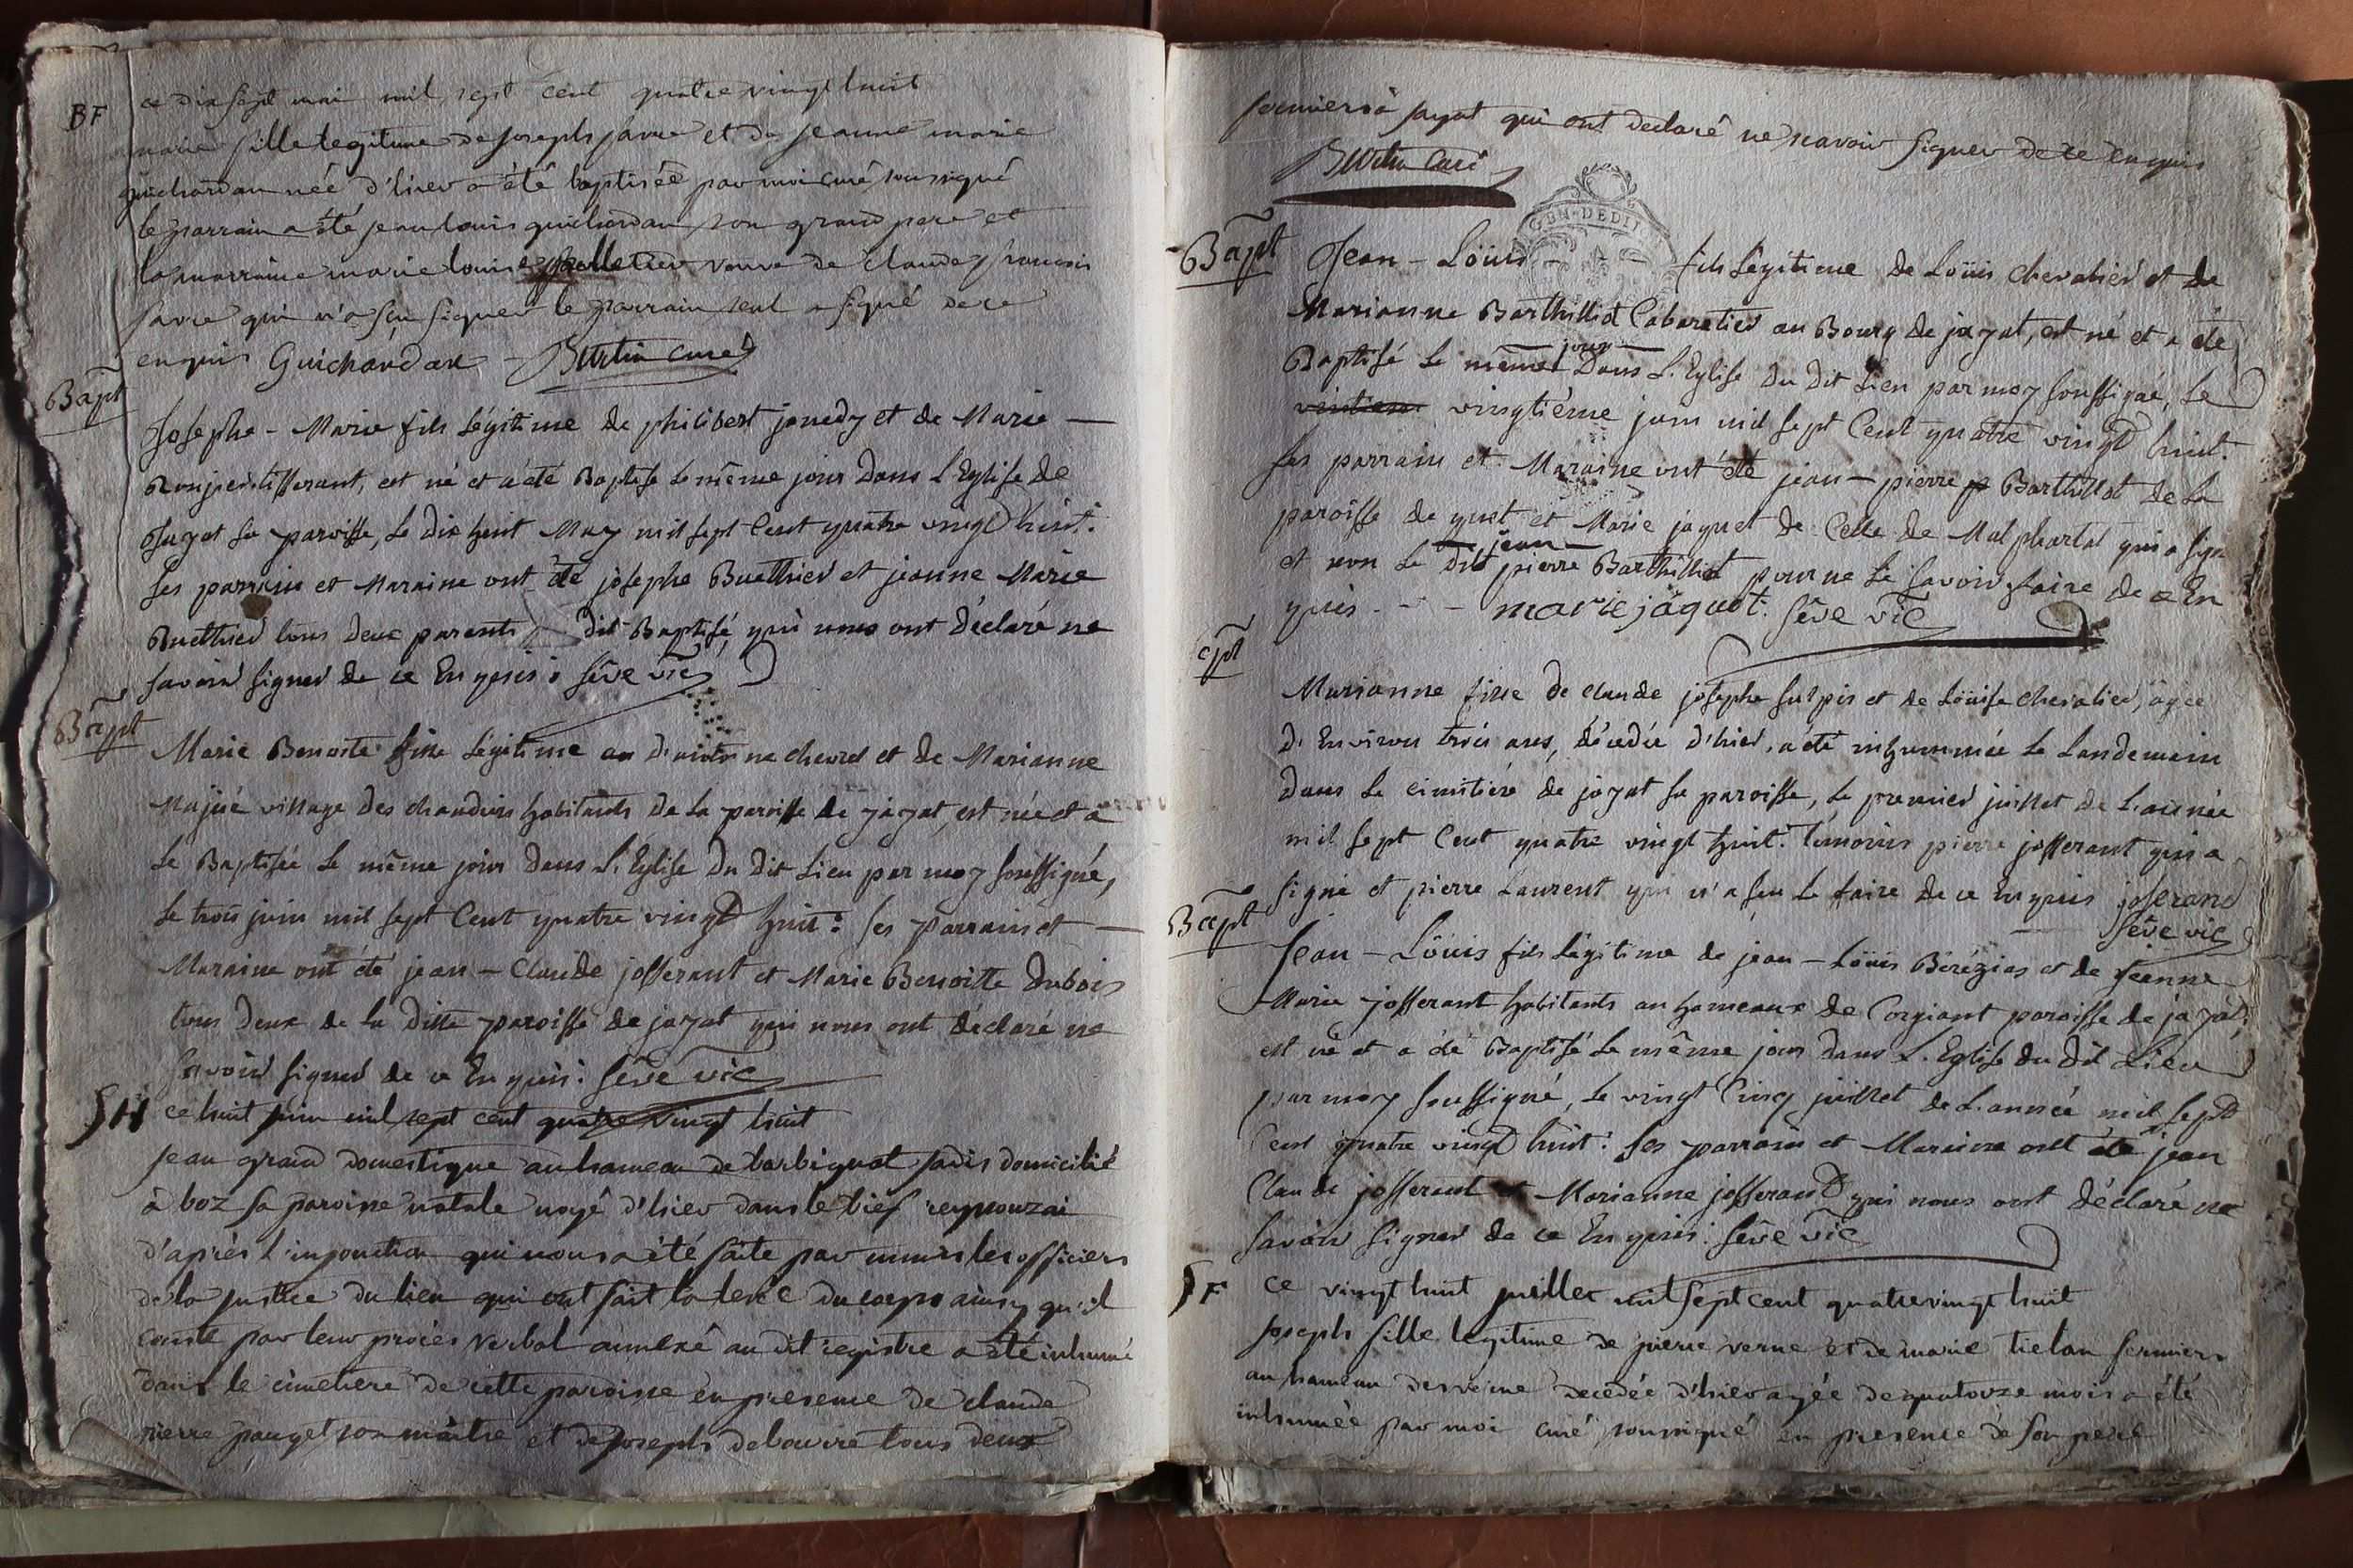 BF
ce dix sept mai mil sept cent quatre vingt huit
marie fille legitime de joseph favre et de jeanne marie
guichardan née d'hier a été baptisée par moi curé soussigné
le parrain a été jean louis guichardan son grand pere et
la marraine marie louise veuve de claude francois
favre qui n'a seu signer le parrain seul a signé de ce
enquis Guichardan Burtin curé
Bapt
Josephe - Marie fils Légitime de philibert et de Marie —
est né et a été Baptisé Le même jour Dans L'Eglise de
Jayat sa paroisse, Le dix huit May mil sept Cent quatre vingt huit.
Ses parrain et Maraine ont été josephe Buathier et jeanne Marie
Buathier tous Deux parents dit Baptisé, qui nous ont Déclaré ne
savoir signer de ce Enquis : Sêve vic
Bapt
Marie Benoite fille Légitime d'antoine chevrel et de Marianne
village des chanduis habitants De La paroisse de jayat, est née et a
Le Baptisée Le même jour dans L'Eglise Du Dit Lieu par moy soussigné,
Le trois juin mil sept Cent quatre vingt huit : ses parrain et —
Maraine ont été jean - Claude josserant et Marie Benoitte Dubois
tous Deux de La Ditte paroisse de jayat qui nous ont déclaré ne
savoir signer de ce Enquis : Sêve vic
SH
ce huit juin mil sept cent quatre vingt huit
jean grand domestique au hameau de barbignat jadis domicilié
à boz sa paroisse natale noyé d'hier dans le bief reyssouzai
d'après l'injonction qui nous a été faite par les officiers
de la justice du lieu qui ont fait la levée du corps ainsy qu'il
conste par leur procès verbal annexé au dit registre a été inhumé
dans le cimetiere de cette paroisse en presence de claude
pierre pauget son maître et de joseph debourre tous deux
fermiers à jayat qui ont declaré ne scavoir signer de ce enquis
Burtin curé
GEN-DEDIJ
Bapt
Jean - Loüis - - fils Légitime de Loüis chevalier et de
Marianne Barthillot Cabaretier au Bourg de jayat, est né et a été
jour
Baptisé Le même Dans L'Eglise Du Dit Lieu par moy soussigné, Le
vingtième juin mil sept Cent quatre vingt huit.
Ses parrain et Maraine ont été jean - pierre Barthillot de La
paroisse de et Marie jaquet de Celle de Malphartat qui a signé
jean
et non Le Dit pierre Barthillot pour ne Le savoir faire de ce En
quis - - - marie jaquot. Sêve vic
Marianne fille de claude josephe sulpis et de Loüise chevalier, agée
D'Environ trois ans, décédée d'hier, a été inhummée Le Landemain
Dans Le cimitière de jayat sa paroisse, Le premier juillet de L'année
mil sept Cent quatre vingt huit. Témoins pierre josserant qui a
signé et pierre Laurent qui n'a seu Le faire de ce Enquis joserand
Sêve vic
Bapt
Jean - Loüis fils Légitime de jean - Loüis Bérézias et de Jeanne
Marie josserant habitants au hameaux de Corgiant paroisse de jayat,
est né et a été Baptisé Le même jour Dans L'Eglise Du Dit Lieu
par moy soussigné, Le vingt Cinq juillet de L'année mil sept
Cent quatre vingt huit : ses parrain et Maraine ont été jean
Claude josserant et Marianne josserant qui nous ont déclaré ne
savoir signer de ce Enquis : Sêve vic
SF
ce vingt huit juillet mil sept cent quatre vingt huit
joseph fille legitime de pierre verne et de marie tielan fermiers
au hameau decedée d'hier agée de quatorze mois a été
inhumée par moi curé soussigné en presence de son pere